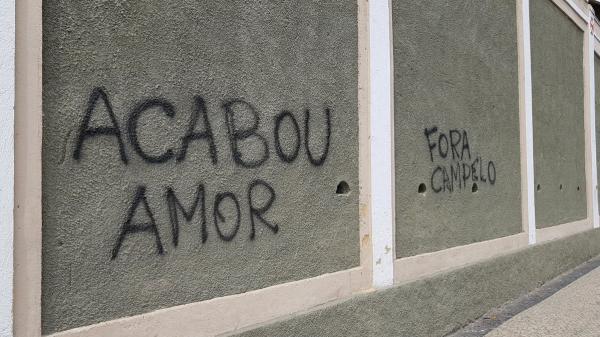 ACABOU
AMOR
FORA
CAMPELO